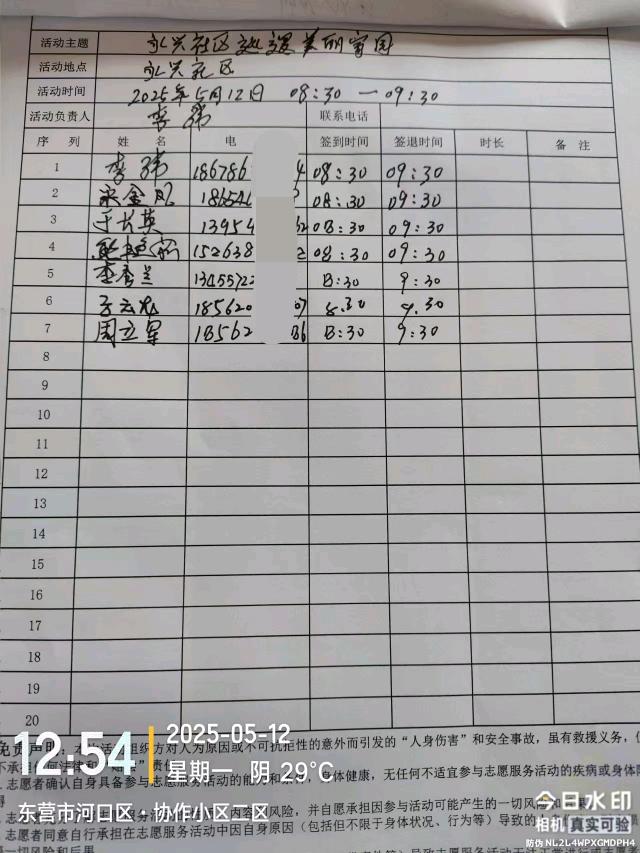 活动主题 永兴社区建设美丽家园
活动地点 永兴社区
活动时间 2025年5月12日 08:30 — 09:30
活动负责人 李 联系电话
序 列 姓 名 电 签到时间 签退时间 时长 备 注
1 李 186786 4 08:30 09:30
2 宋金凤 18654 08:30 09:30
3 于长英 13954 62 08:30 09:30
4 152638 2 08:30 09:30
5 李秀兰 13455722 8:30 9:30
6 于云龙 185620 07 8.30 9.30
7 周立军 18562 86 8:30 9:30
8
9
10
11
12
13
14
15
16
17
18
19
20
免责声明: 本 活动组织方对人为原因或不可抗拒性的意外而引发的“人身伤害”和安全事故,虽有救援义务,
不承担任何法律和 责任
志愿者确认自身具备参与志愿服务活动的能力和条件,身体健康,无任何不适宜参与志愿服务活动的疾病或身体
内容 风险,并自愿承担因参与活动可能产生的一切风险和 果
志愿者同意自行承担在志愿服务活动中因自身原因(包括但不限于身体状况、行为等)导致的
一切风险和后果
12:54
2025-05-12
星期一 阴 29℃
东营市河口区·协作小区二区
今日水印
相机 真实可验
防伪 NL2L4WPXGMDPH4